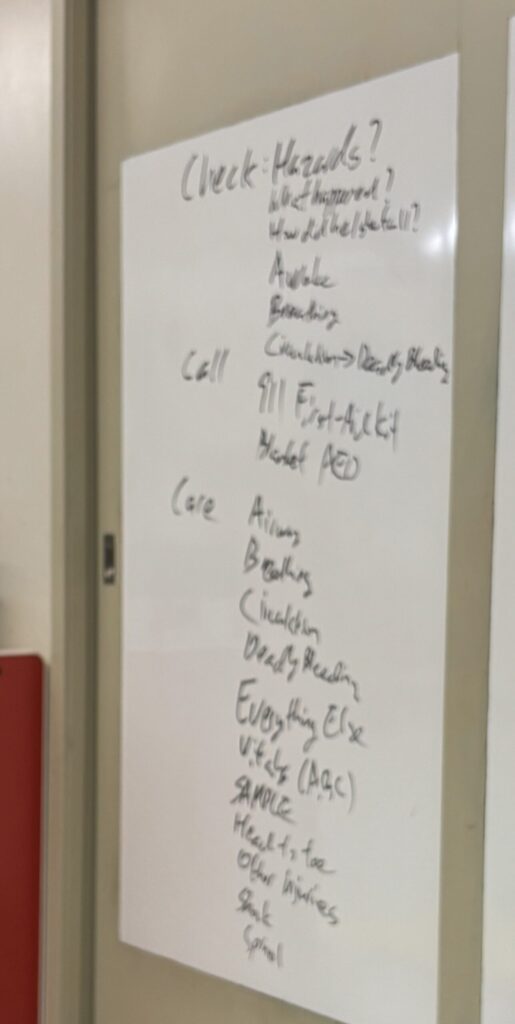 Check: Hazards?
What happened?
How did he/she fall?
Awake
Breathing
Circulation → Deadly Bleeding
Call 911 First-Aid Kit
Blanket AED
Care Airway
Breathing
Circulation
Deadly Bleeding
Everything Else
Vitals (ABC)
SAMPLE
Head to toe
Other Injuries
Shock
Spinal